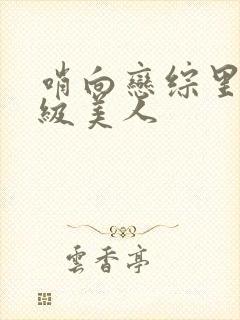 哨向戀綜里
級美人
雲香亭